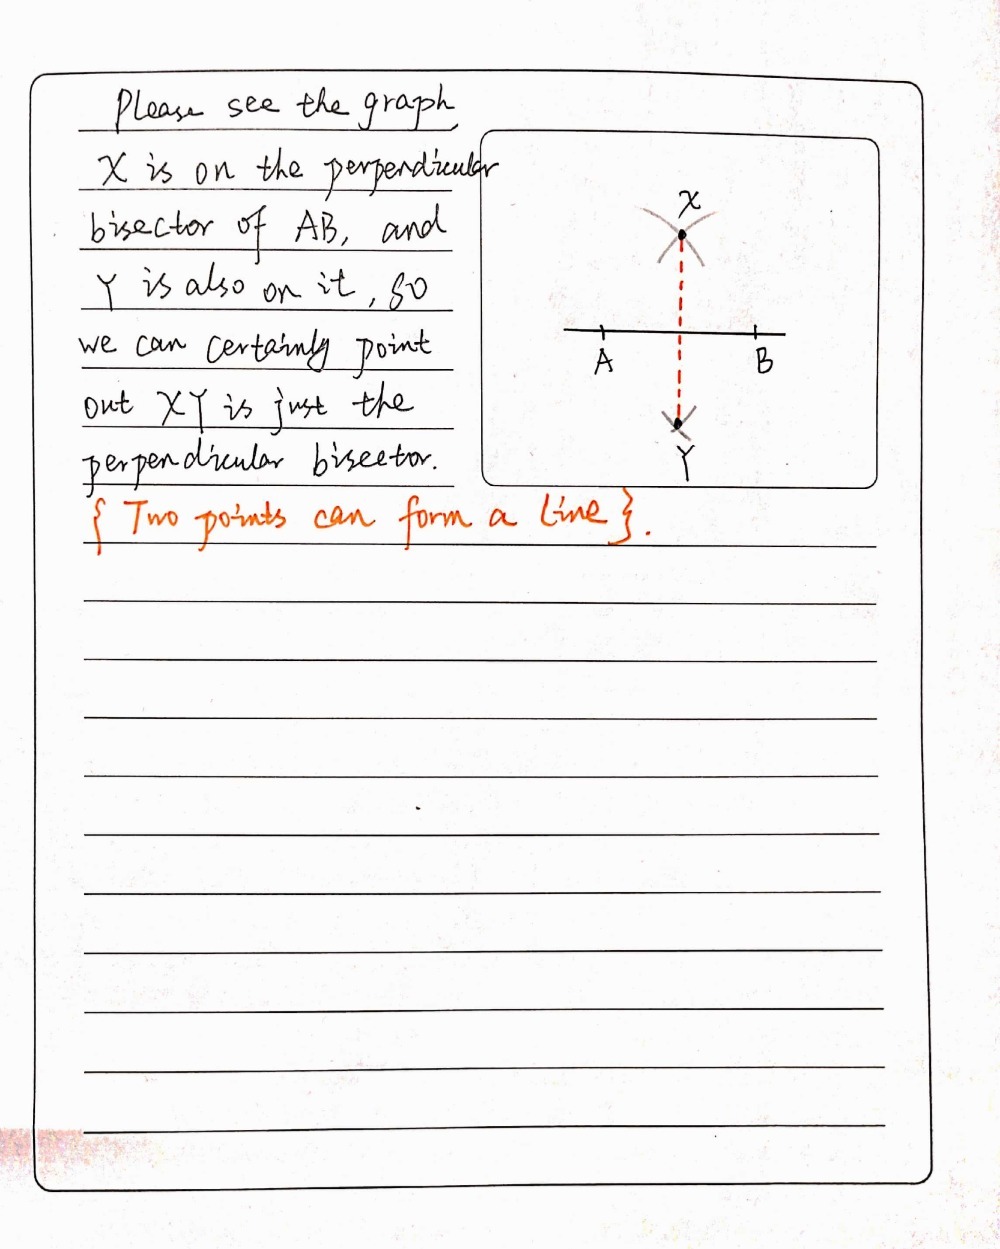 Please see the graph
X is on the perpendicular
bisector of AB, and
Y is also on it, so
we can certainly point
out XY is just the
perpendicular bisector.
{ Two points can form a line }.
X
A
B
Y